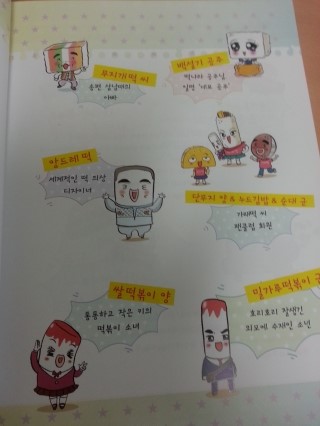 무지개떡 씨
송편 삼남매의
아빠
백설기 공주
떡나라 공주님
일명 '네모 공주'
앙드레 떡
세계적인 떡 의상
디자이너
단무지 양 & 누드김밥 & 순대 군
가래떡 씨
팬클럽 회원
쌀떡볶이 양
통통하고 작은 키의
떡볶이 소녀
밀가루떡볶이 군
호리호리 잘생긴
외모에 수재인 소년